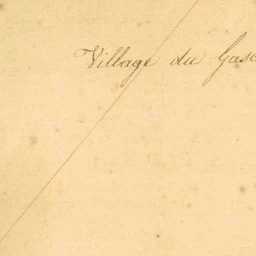 Village du Gasc